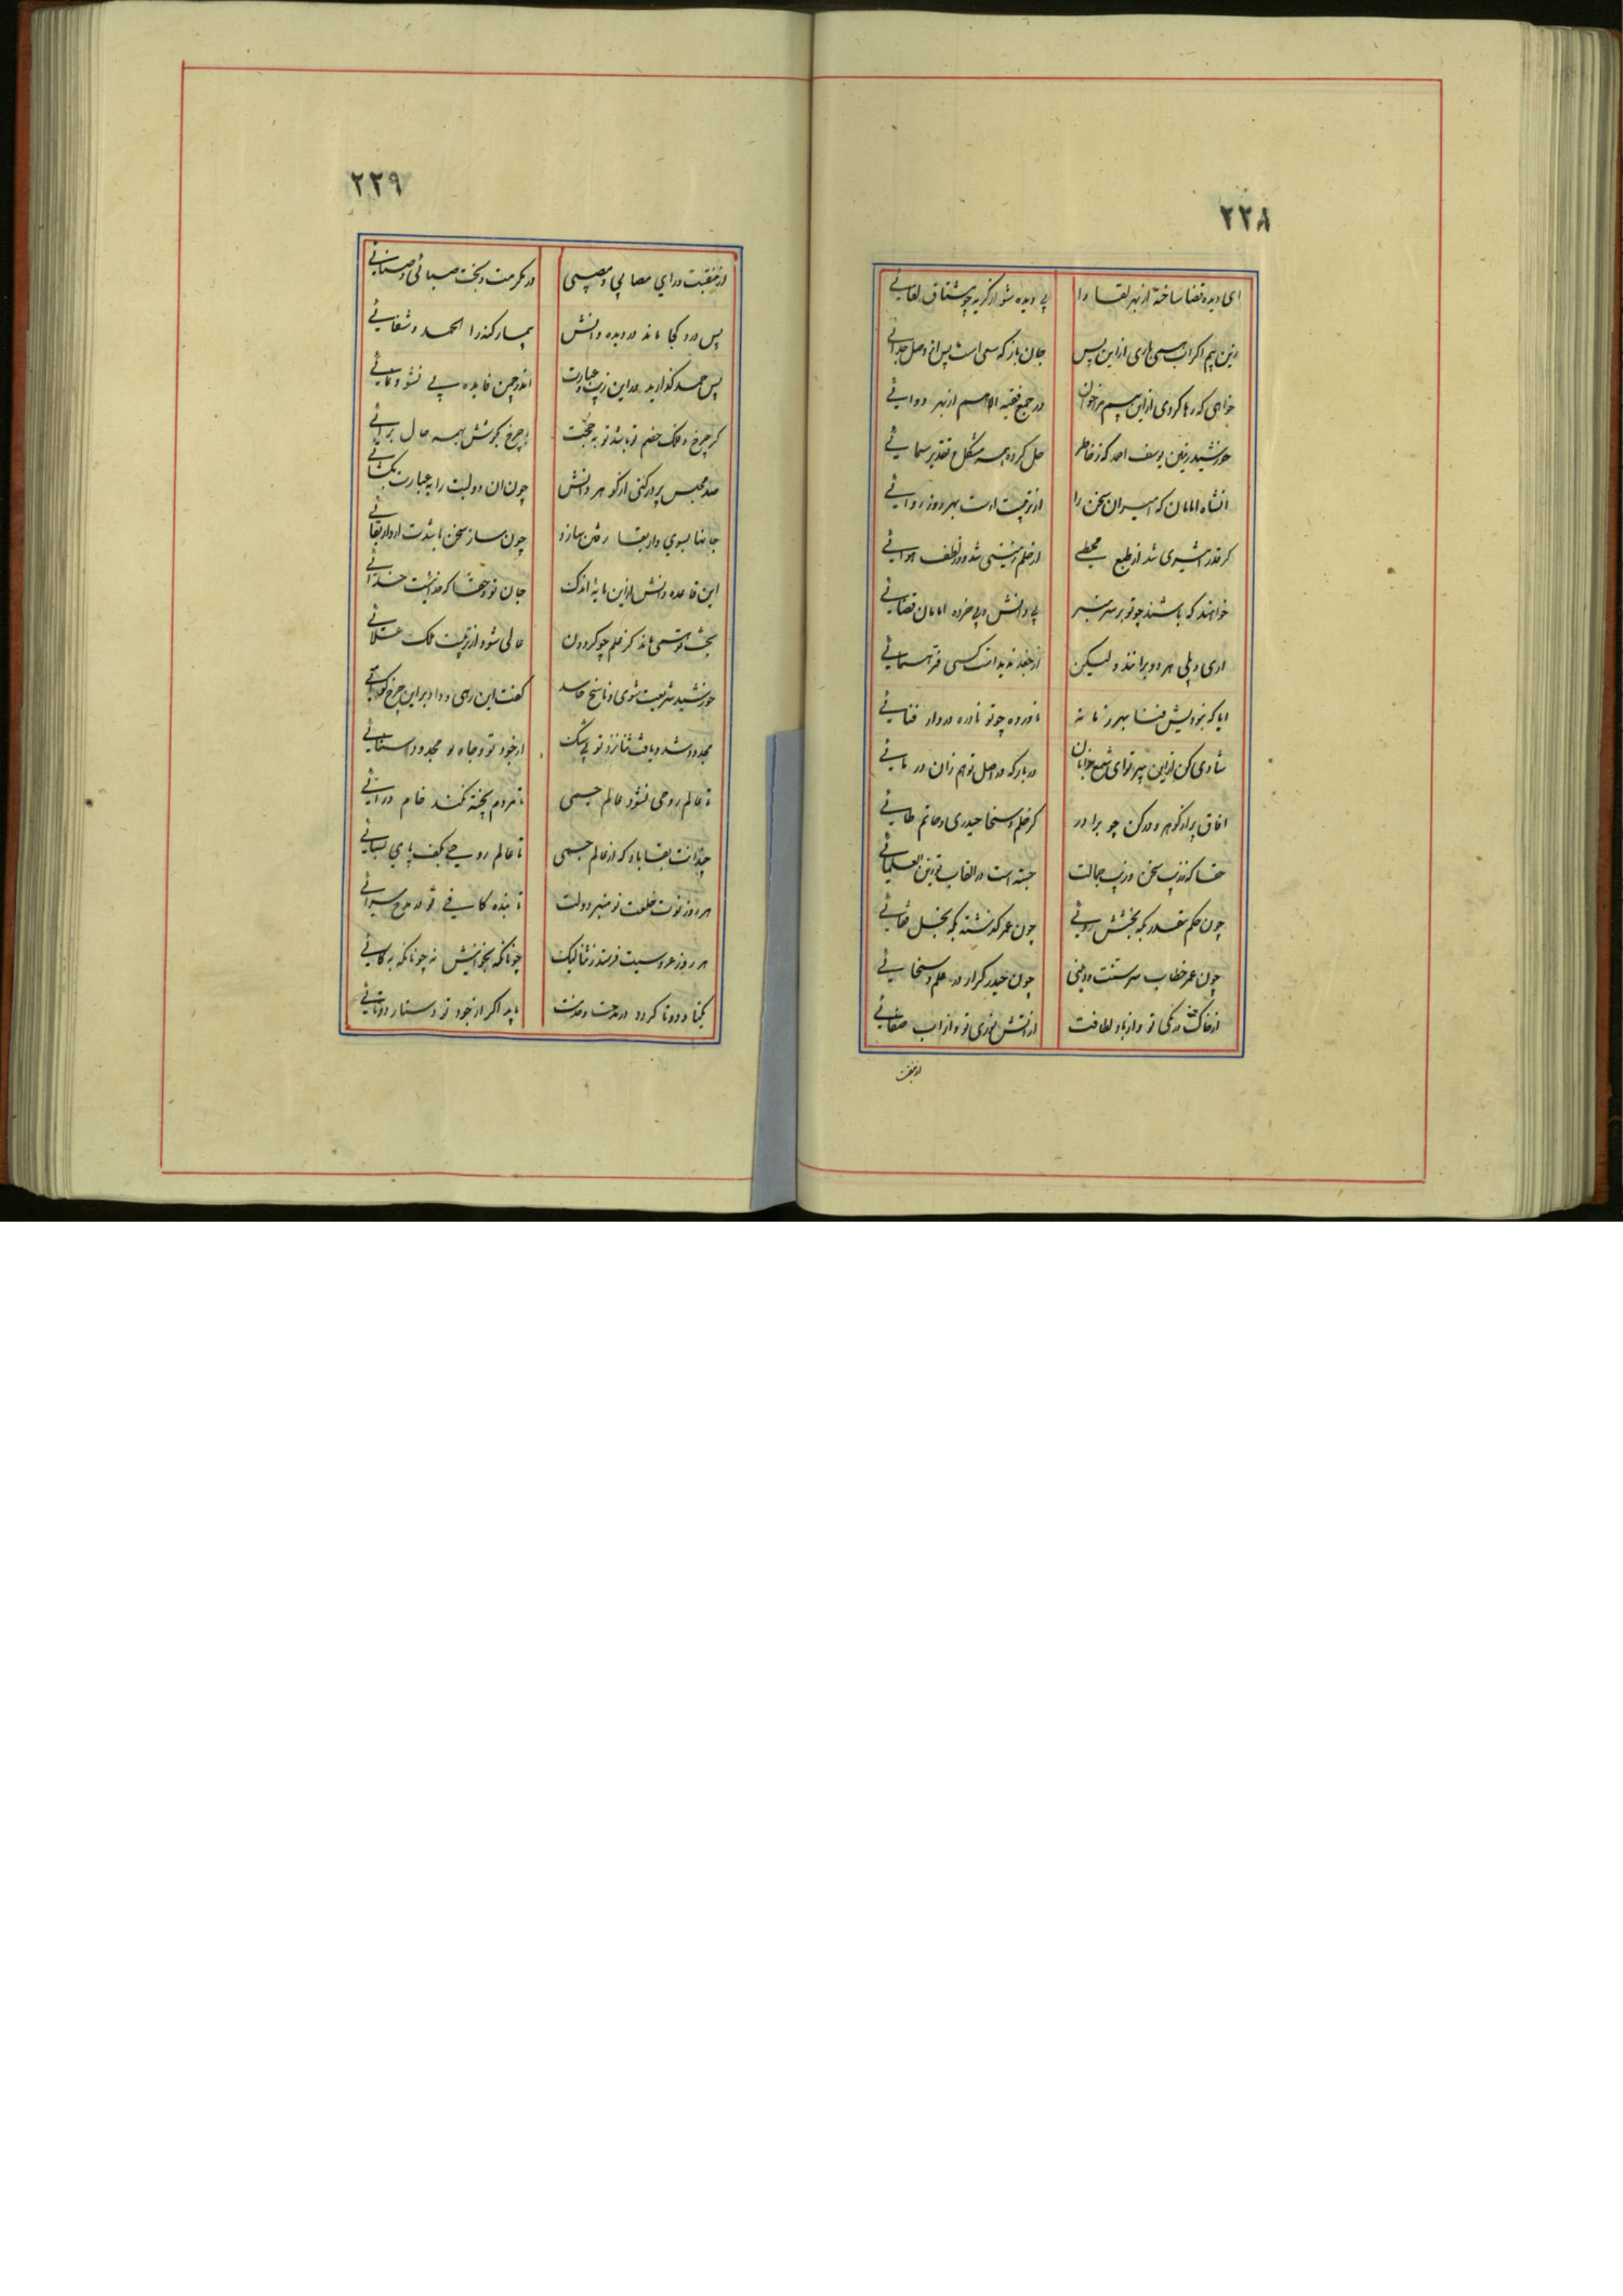 ۲۲۸
ای دیده قضا ساخته از بهر لقا را بی دیده شو از گریه چو مشتاق لقائی
زین بیم اکر اب همی باری ازاین پس جان باز که سهمی است پس از وصل جدائی
خواهی که رها کردی ازاین بیم بر خوان در جمع فقیه الامم از بهر دوائی
خورشید زمین یوسف احمد که ز خاطر حل کرده همه مشکل تقدیر سمائی
انشاه امامان که اسیران سخن را از تربیت اوست بهر روز روائی
کر قدر اثیری شد از طبع محیطی از حلم زمینی شد و در لطف هوائی
خواهند که باشند چو تو بر سر منبر بی دانش و بی خرده امامان قضائی
اری و بلی هر دو برانند ولیکن از جغد ندیدست کسی فر همائی
ایا که بزودیش فنا بهر زمانه ناورده چو تو نادره در دار فنائی
شادی کن ازاین بهر تو ای شمع که در اصل تو هم زان در مائی
افاق پر از کوهر و در کن چو برادر کر حلم و سخا حیدری و حاتم طائی
حقا که ززیب سخن و زیب جمالت جسته است در القاب تو زین العلمائی
چون حکم مقدر بکه بخشش روئی چون عمر کذشته بکه بخل قفائی
چون عمر خطاب سر سنت و دینی چون حیدر کرار در علم و سخائی
از خاک درنگی تو و از باد لطافت از اتش نوری تو و از اب صفائی
از منقبت
۲۲۹
از منقبت و رای مصابی و مصیبی در مکرمت و بخت صبائی و صبائی
پس درد کجا ماند در دیده دانش بیمار کند را الحمد و شفائی
پس حمد کذارید در این زیب و عبارت اندر چمن فایده بی نشو و نمائی
کر چرخ و فلک خصم تو باشد تو به حجت با چرخ بکوشش بهمه حال برائی
صد مجلس پر در کنی از کوهر دانش چون ان دو لبت را به عبارت بکشائی
جانها بسوی دار بقا رفتن سازد چون ساز سخن باشدت از دار بقائی
این قاعده دانش ازاین مایه اندک جان تو و حقا که خدائیست خدائی
بخت تو همی ماند کز حلم چو کردون عالی شود از تربیت ملک علائی
خورشید شریعت شوی و ناسخ حاسد کفت این رهی و داد براین چرخ کوائی
مجدود شد و یافت ثنا نزد تو بی شک از جود تو و جاه تو مجدود سنائی
تا عالم روحی نشود عالم جسمی تا مردم پخته نکند خام درائی
چندانت بقا باد که از عالم جسمی تا عالم روحی بکف پای بسائی
هر روز نوت خلعت نو منبر و دولت تا بنده کافی تو در مدح سرائی
هر روز عروسیت فرستد ز ثنا لیک چونانکه بخوانیش نه چونانکه به کائی
یکتا و دوتا کردد در مدحت و خدمت یابد اکر از جود تو دستار دوتائی